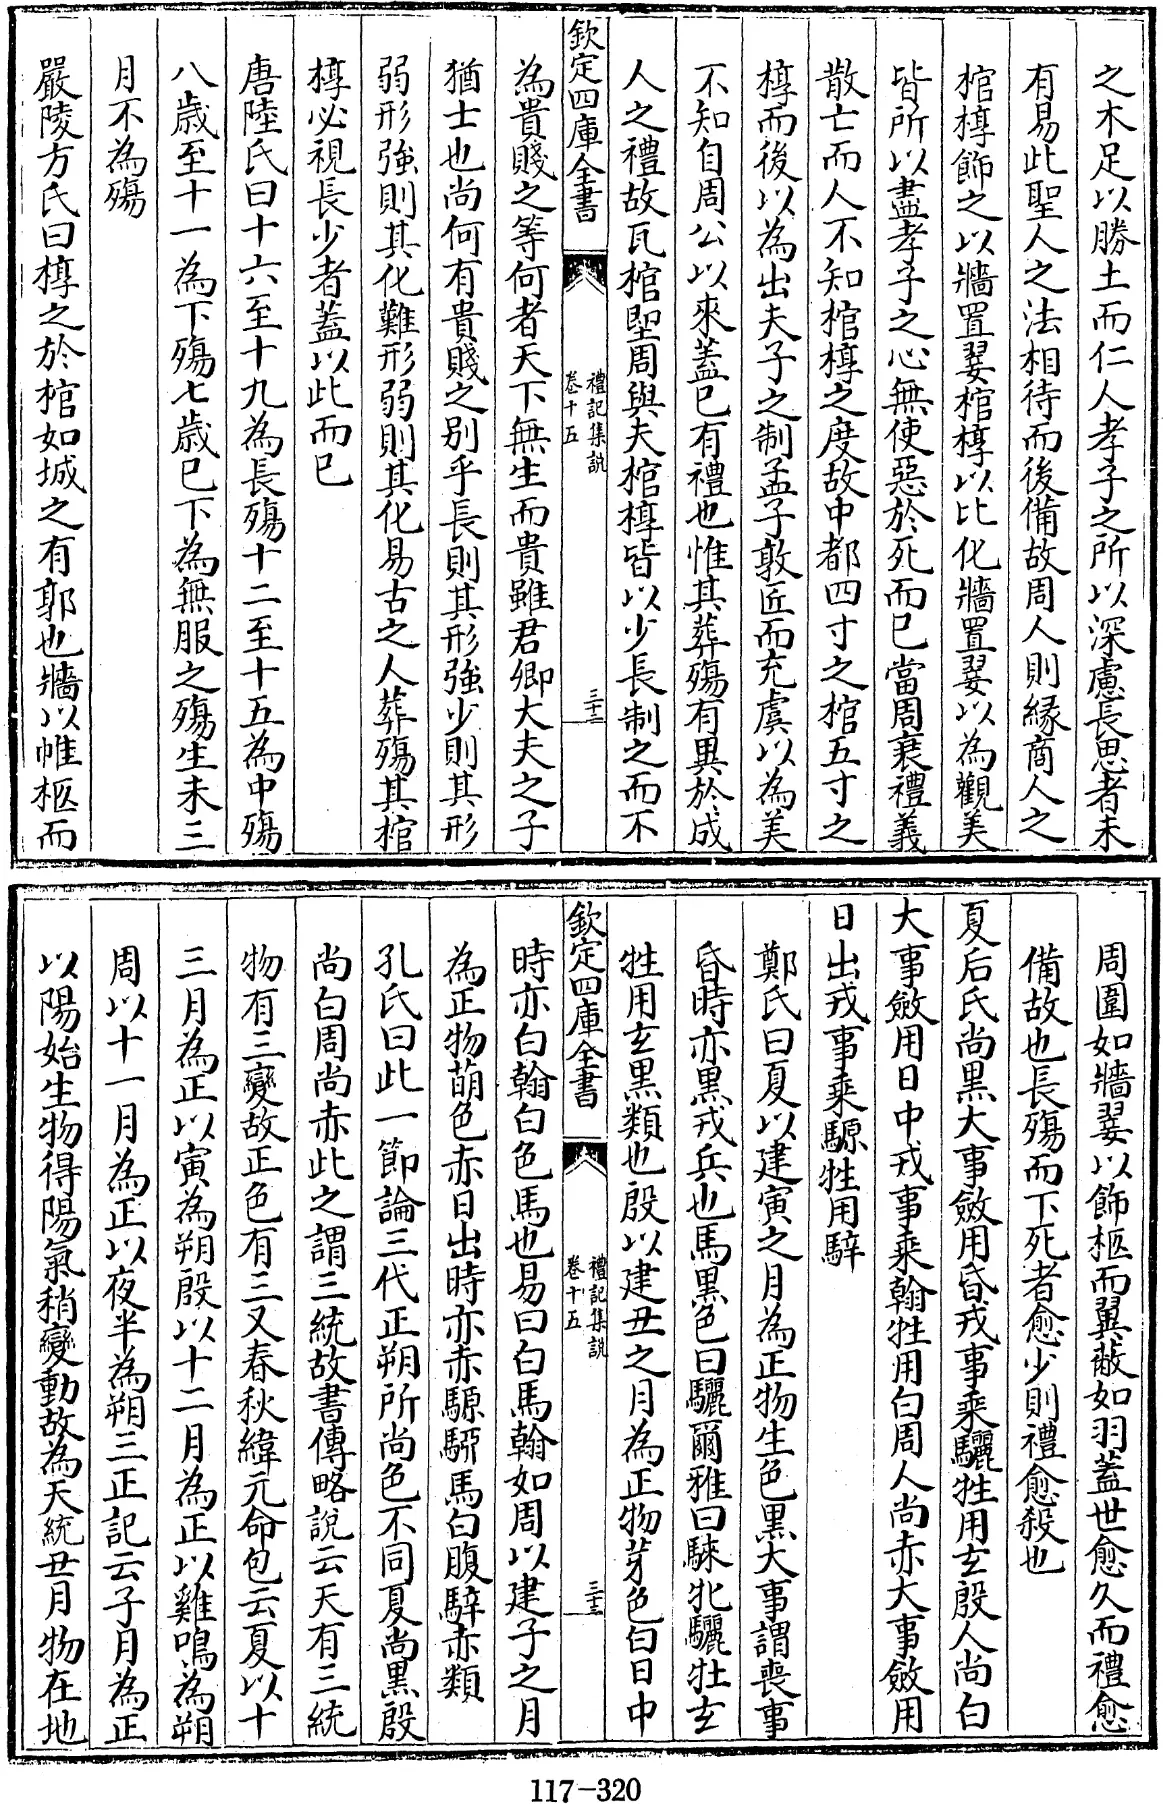 之木足以勝土而仁人孝子之所以深慮長思者未
有易此聖人之法相待而後備故周人則緣商人之
棺椁飾之以牆置翣棺椁以比化牆置翣以為觀美
皆所以盡孝子之心無使惡於死而已當周衰禮義
散亡而人不知棺椁之度故中都四寸之棺五寸之
椁而後以為出夫子之制孟子敦匠而充虞以為美
不知自周公以來蓋已有禮也惟其葬殤有異於成
人之禮故瓦棺堲周與夫棺椁皆以少長制之而不
欽定四庫全書
禮記集說
卷十五
三十二
為貴賤之等何者天下無生而貴雖君卿大夫之子
猶士也尚何有貴賤之別乎長則其形強少則其形
弱形強則其化難形弱則其化易古之人葬殤其棺
椁必視長少者蓋以此而已
唐陸氏曰十六至十九為長殤十二至十五為中殤
八歲至十一為下殤七歲已下為無服之殤生未三
月不為殤
嚴陵方氏曰椁之於棺如城之有郭也牆以帷柩而
周圍如牆翣以飾柩而翼蔽如羽蓋世愈久而禮愈
備故也長殤而下死者愈少則禮愈殺也
夏后氏尚黑大事斂用昏戎事乘驪牲用玄殷人尚白
大事斂用日中戎事乘翰牲用白周人尚赤大事斂用
日出戎事乘騵牲用騂
鄭氏曰夏以建寅之月為正物生色黑大事謂喪事
昏時亦黑戎兵也馬黑色曰驪爾雅曰騋牝驪牡玄
牲用玄黑類也殷以建丑之月為正物芽色白日中
欽定四庫全書
禮記集說
卷十五
三十三
時亦白翰白色馬也易曰白馬翰如周以建子之月
為正物萌色赤日出時亦赤騵駵馬白腹騂赤類
孔氏曰此一節論三代正朔所尚色不同夏尚黑殷
尚白周尚赤此之謂三統故書傳略說云天有三統
物有三變故正色有三又春秋緯元命包云夏以十
三月為正以寅為朔殷以十二月為正以雞鳴為朔
周以十一月為正以夜半為朔三正記云子月為正
以陽始生物得陽氣稍變動故為天統丑月物在地
117-320